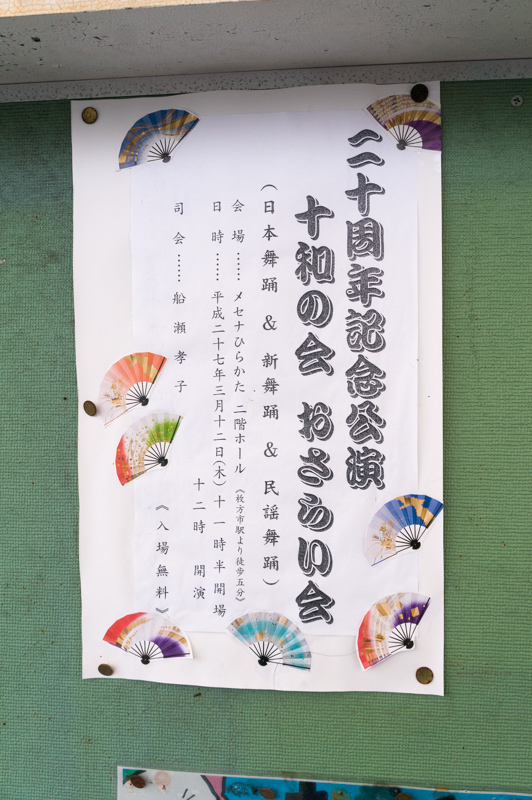 二十周年記念公演
十和の会 おさらい会
(日本舞踊 & 新舞踊 & 民謡舞踊)
会場…… メセナひらかた 二階ホール《枚方市駅より徒歩五分》
日時…… 平成二十七年三月十二日(木)十一時半開場
十二時 開演
司会…… 船瀬孝子
《入場無料》